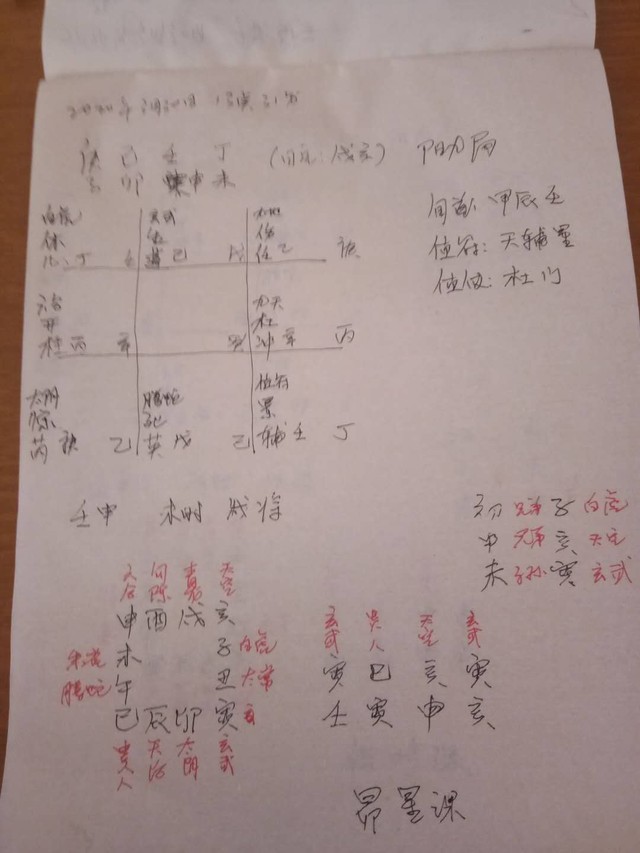 2020年3月20日 13点31分
庚 己 壬 丁 (旬空:戌亥)
子 卯 申 未
旬首:甲辰壬
值符:天辅星
值使:杜门
白虎 玄武 九地
休
心 丁 己 任 乙
六合 九天
开 杜
柱 丙 辛 冲 辛 丙
太阴 腾蛇 值符
芮 乙 英 戊 己 辅 壬 丁
壬申 未时 戌将
初 兄弟 子 白虎
申 兄弟 亥 天空
末 子孙 寅 玄武
六合 勾陈 青龙 天空
申 酉 戌 亥
朱雀 未 子 白虎
腾蛇 午 丑 太常
巳 辰 卯 寅 玄
贵人 天后 太阴 玄武
玄武 贵人 天空 玄武
寅 巳 亥 寅
壬 寅 申 亥
昴星课